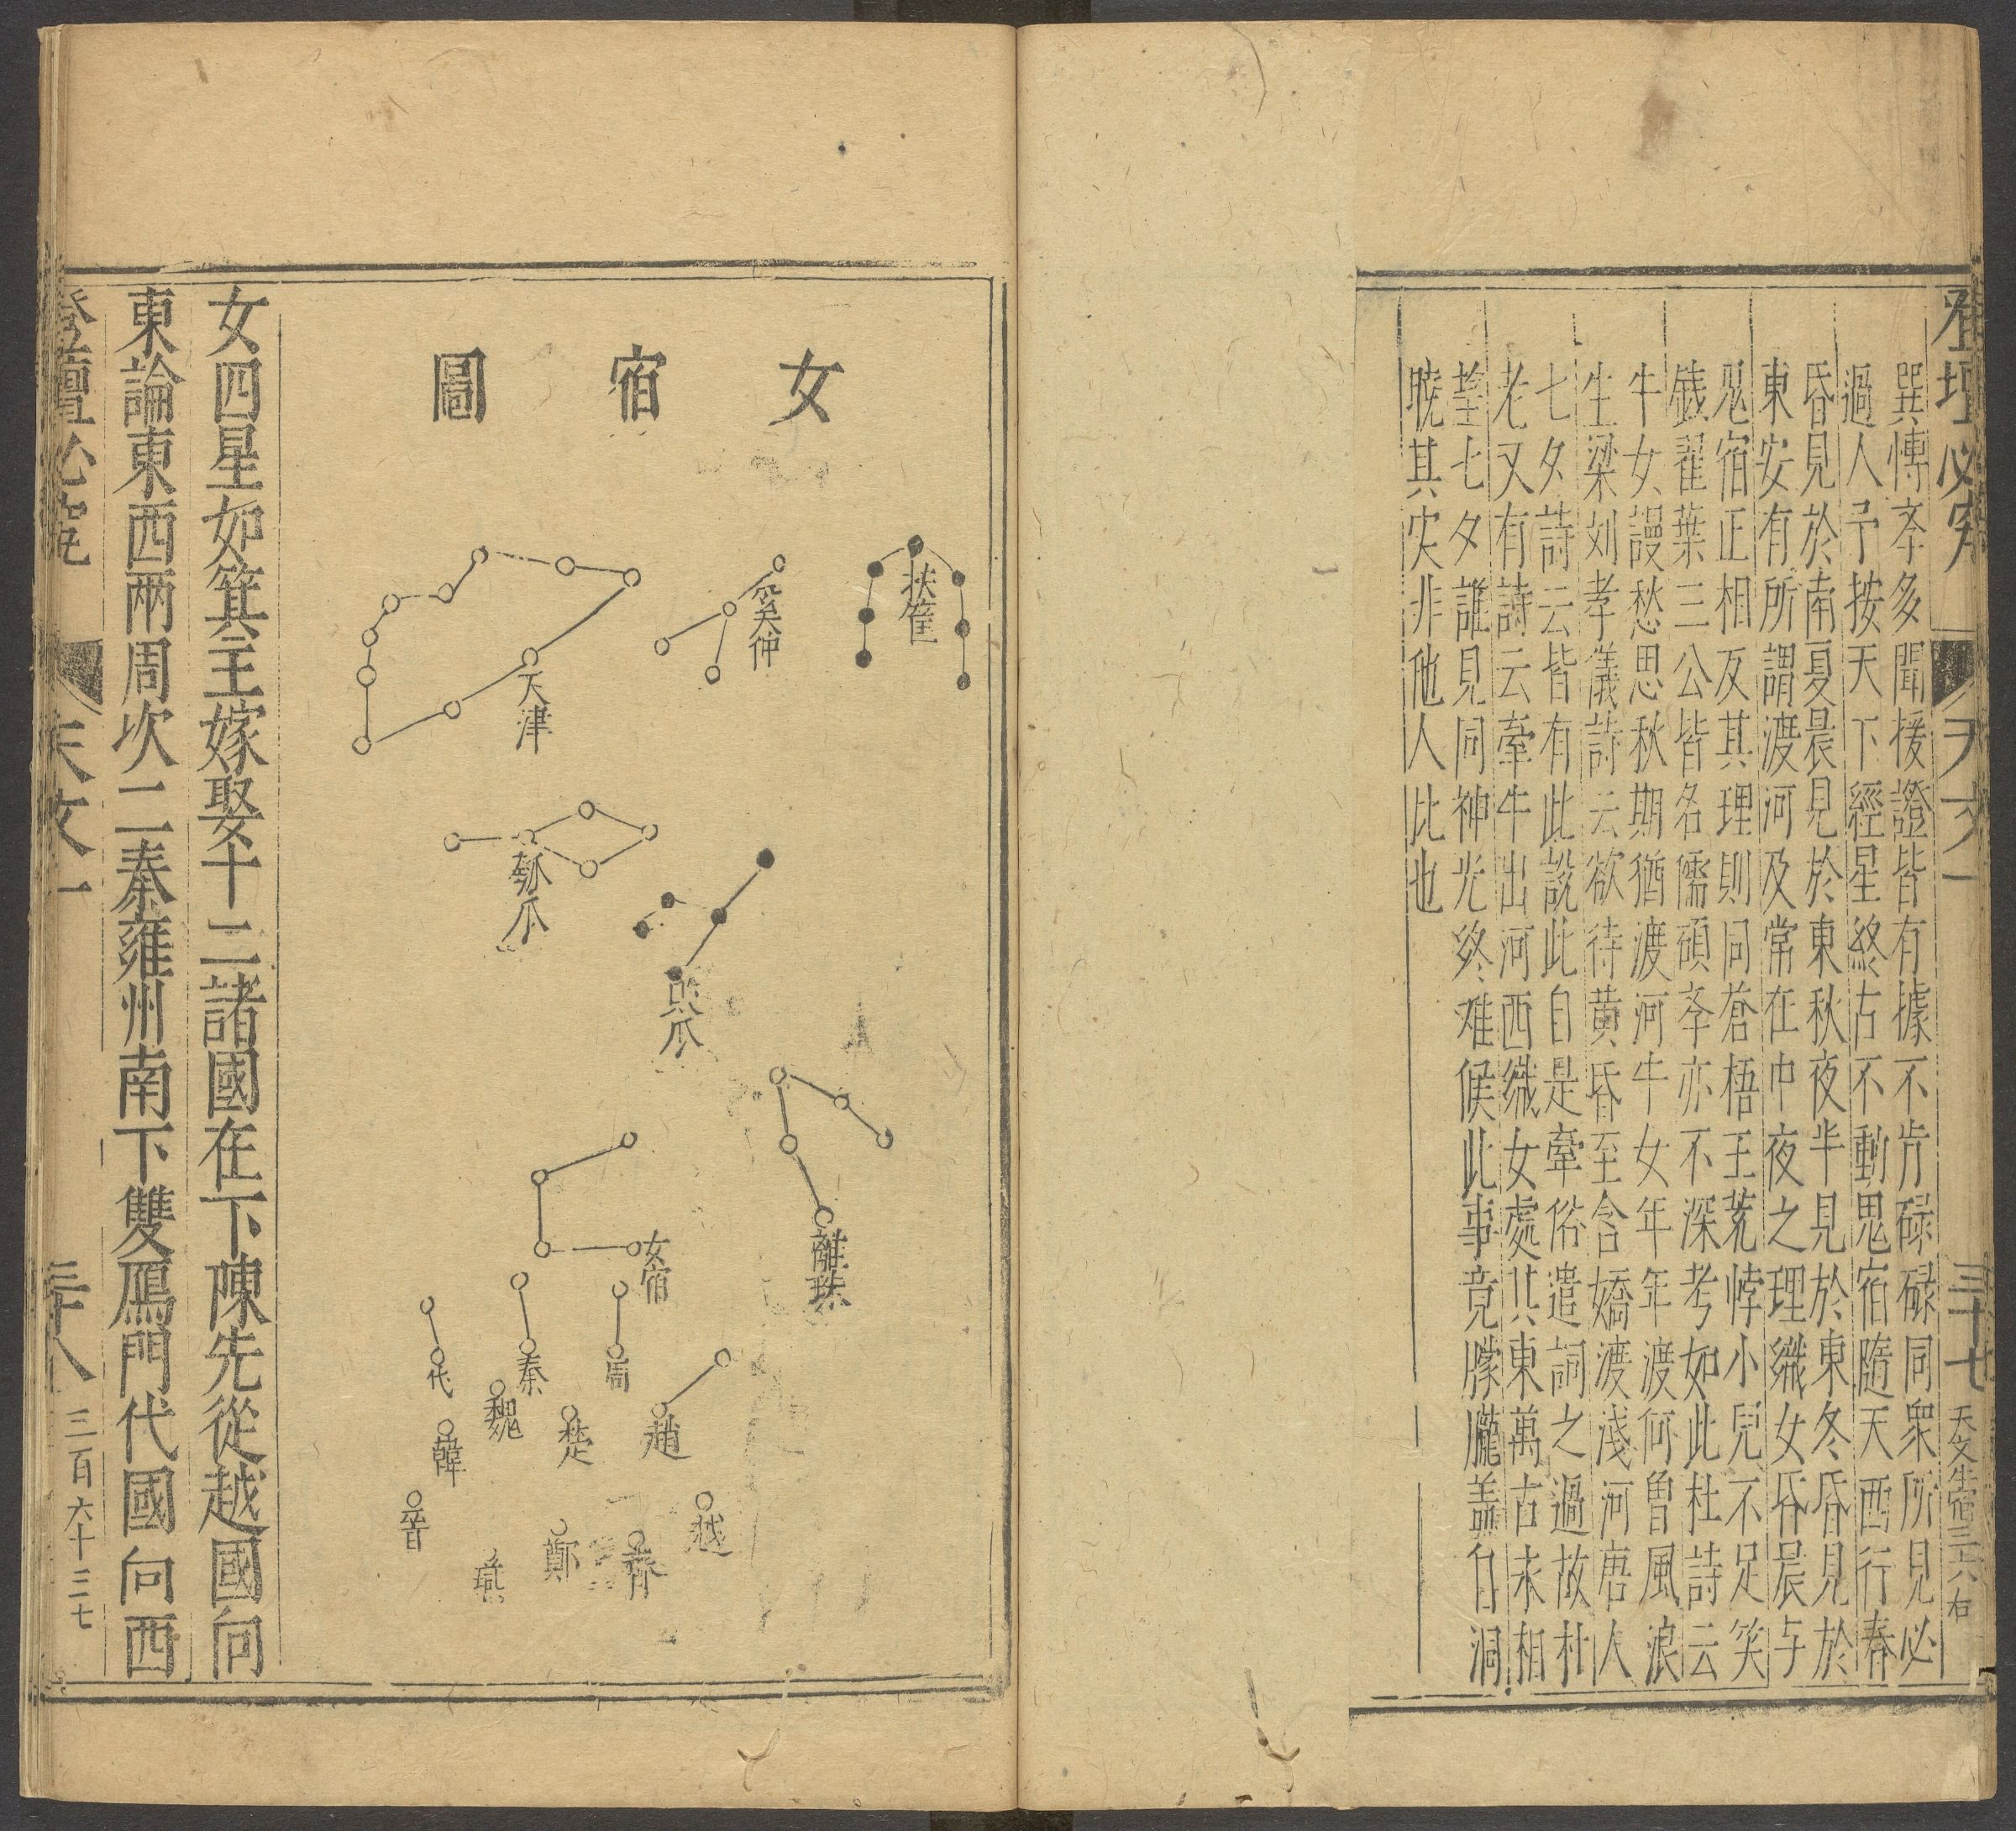 登壇必究 天文一 三十七 天文牛宿三六右
巽博斈多聞援證皆有據不肯碌碌同衆所見必
過人予按天下經星終古不動鬼宿隨天西行春
昏見於南夏晨見於東秋夜半見於東冬昏見於
東安有所謂渡河及常在中夜之理織女昏晨与
鬼宿正相反其理則同蒼梧王荒悖小兒不足笑
錢翟葉三公皆名儒碩斈亦不深考如此杜詩云
牛女謾愁思秋期猶渡河牛女年年渡何曾風浪
生梁刘孝儀詩云欲待黄昏至含嬌渡淺河唐人
七夕詩云皆有此說此自是牽俗遣詞之過故杜
老又有詩云牽牛出河西織女處其東萬古永相
望七夕誰見同神光終难候此事竟朦朧盖自洞
曉其实非他人比也
女宿圖
扶筐
奚仲
天津
瓠瓜
敗瓜
離珠
女宿
周
秦
代
趙
楚
魏
韓
越
齊
鄭
燕
晉
女四星如箕主嫁娶十二諸國在下陳先從越國向
東論東西兩周次二秦雍州南下雙鴈門代國向西
登壇必究 天文一 三十八 三百六十三七